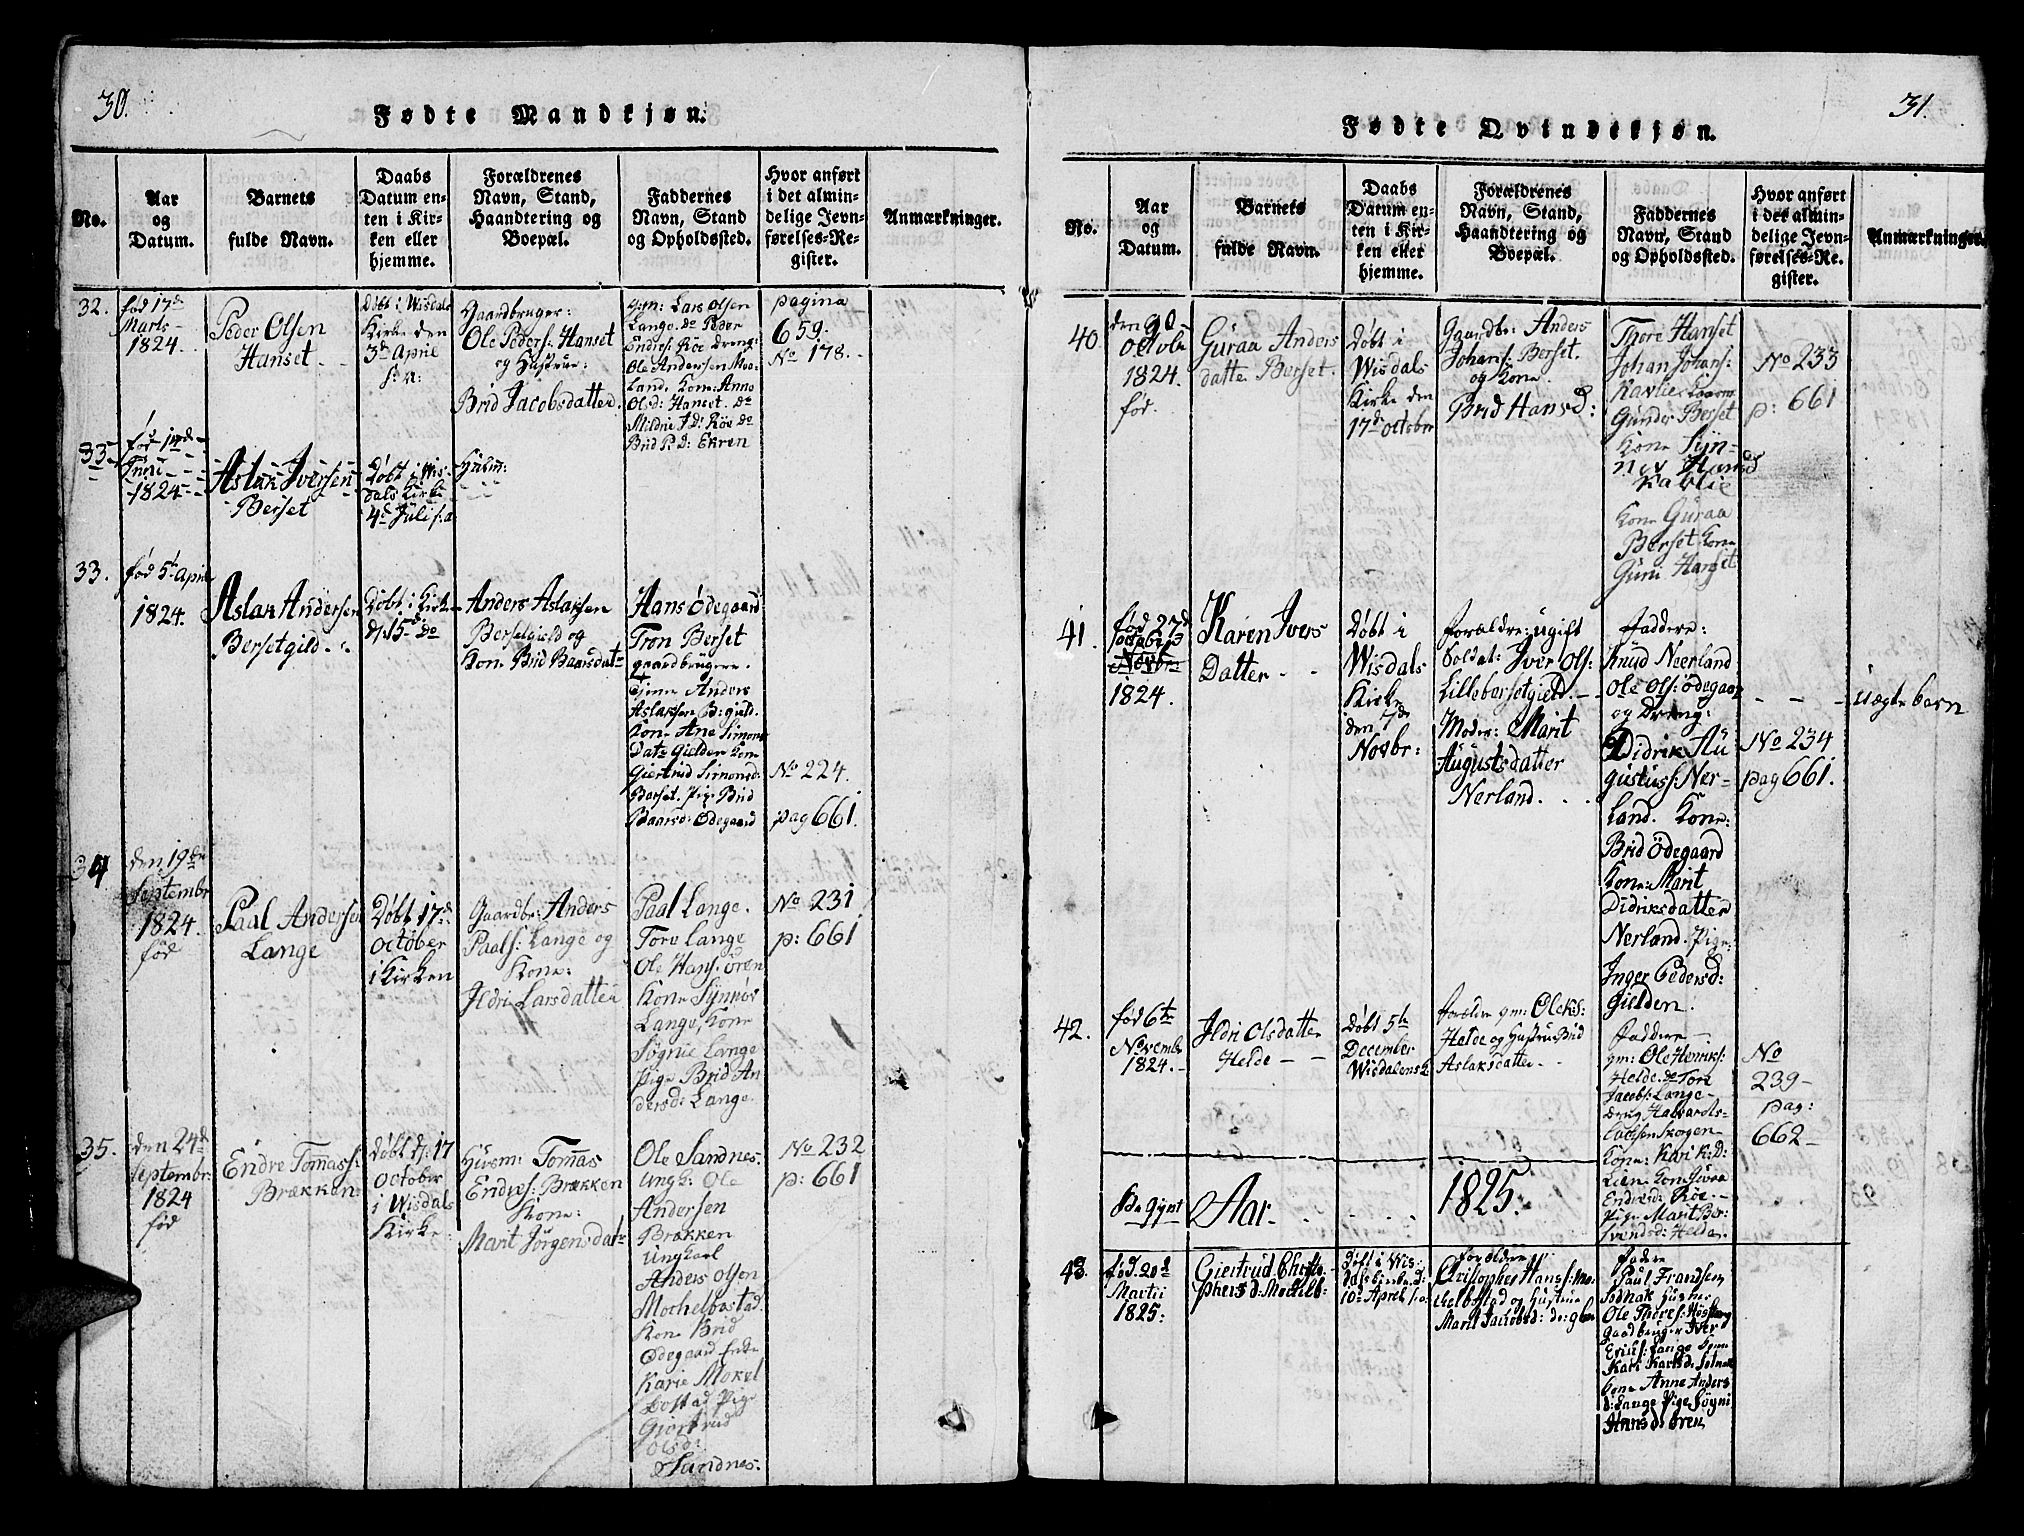 30.
Fødte Mandkjøn.
No.
Aar
og
Datum.
Barnets
fulde Navn.
Daabs
Datum en-
ten i Kir-
ken eller
hjemme.
Forældrenes
Navn, Stand,
Haandtering og
Boepæl.
Faddernes
Navn, Stand
og Opholdssted.
Hvor anført
i det almin-
delige Jevn-
førelses-Re-
gister.
Anmærkninger.
32.
fød 17d
Marts
1824
Peder Olsen
Hanset
Døbt i Wisdals
Kirke den
3d April
s: a:
Gaardbruger:
Ole Peders: Hanset
og Hustrue:
Brid Jacobsdatter
gm: Lars Olsen
Lange do Peder
Endres: Röe Dreng:
Ole Andersen Moe
Land. Kone: Anne
Olsd: Hanset. do
Mildrie J D: Röe do
Brid P. D: Ekren
pagina
659.
No 178.
33
fød
1824
Aslak Iversen
Berset
Døbt i Wis-
dals Kirke
4d Juli s: a
Husm:
33.
fød 5t April
1824.
Aslak Andersen
Bersetgield
Døbt i Kirke
d: 15 do
Anders Aslaksen
Bersetgield og
Kone Brid Baarsdatr
Hans Ödegaard
Tron Berset
gaardbrugere
Anders
Aslaksen B: gield.
Kone Ane Simons
Datr Gielden Kone
Giertrud Simonsd:
Berset. Pige Brid
Baarsd: Ödegaard
No 224.
pag 661.
34
den 19de
Septembr
1824.
fød
Paal Andersen
Lange
Døbt 17d
October
i Kirken
Gaardbr: Anders
Paals: Lange og
Kone:
Ildri Larsdatter
Paal Lange.
Tore Lange
Ole Hans: ören
Kone Synnøv
Lange, Kone
Søgnie Lange
Pige Brid An
dersd: Lange
No 231
p: 661
35.
den 24d
Septembr:
1824
fød
Endre Tomass:
Brækken
Døbt d: 17
October
i Wisdals
Kirke
Husm: Tomas
Endres: Brækken
Kone:
Marit Jörgensdatr
Ole Sandnes.
Ungk: Ole
Andersen
Brækken
Ungkarl
Anders Olsen
Mochelbostad.
Kone Brid
Ödegaard Enke
Karie Mokel
bostad Pige
Giertrud
Olsd:
Sandnes.
No 232
p: 661
31.
Fødte Qvindekjøn.
No.
Aar
og
Datum.
Barnets
fulde Navn.
Daabs
Datum en-
ten i Kir-
ken eller
hjemme.
Forældrenes
Navn, Stand,
Haandtering og
Boepæl.
Faddernes
Navn, Stand
og Opholdssted.
Hvor anført
i det almin-
delige Jevn-
førelses-Re-
gister.
Anmærkninger.
40
Octobr
1824.
fød.
Guraa Anders
datter Berset.
Døbt i
Wisdals
Kirke den
17d October
Gaardbr: Anders
Johans: Berset.
og Kone
Brid Hansd:
Thore Hanset
Johan Johans:
Kavlie
Gunder Berset
Kone Syn-
nev Hansd
Kavlie
Kone Guraa
Berset Kone
Guni Hanset
No 233
p: 661
41.
fød 27d
October
Novbr:
1824.
Karen Ivers
Datter
Døbt i
Wisdals
Kirke
den 7de
Novbr:
Forældre: ugift
Soldat: Iver Ols:
Lillebersetgield.
Moder: Marit
Augustsdatter
Nerland.
Faddere:
Knud Neerland
Ole Ols: Ödegaar
og Dreng:
Didrik Au
gustus: Ner-
land. Kone:
Brid Ödegaard
Kone: Marit
Didriksdatter
Nerland. Pige:
Inger Pedersd:
Gielden.
No 234
pag 661.
uægte barn
42.
fød 6te
Novembr
1824.
Ildri Olsdatter
Helde
Døbt 5te
December
Wisdalens K:
Forældre gm: Ole Ks:
Helde og Hustrue Brid
Aslaksdatter
Faddere
gm: Ole Henriks:
Helde. do Tore
Jacobs: Lange
dreng Halvard
Larsen Skogen
Kone: Kari K: D:
Lien Kone Guraa
Endresd: Röe.
Pige Marit Ber-
svendsd: Helde.
No
239
pag:
662
Begynt
Aar
1825.
43.
fød. 20d
Martii
1825.
Giertrud Christo
phersd: Mochelb:
Døbt i Wis-
dals Kirke d:
10de April s: a:
Forældre
Christopher Hans: Mo
chelbostad og Hustrue
Marit Jacobsd: do:
Fadere
Paul Frandsen
Solnak Husm:
Ole Thores:
Gaardbruger Iver
Erichs: Lange
Kari Karlsd: Solnak
Kone Anne Anders
d: Lange Pige Søgni
Hansd: Ören